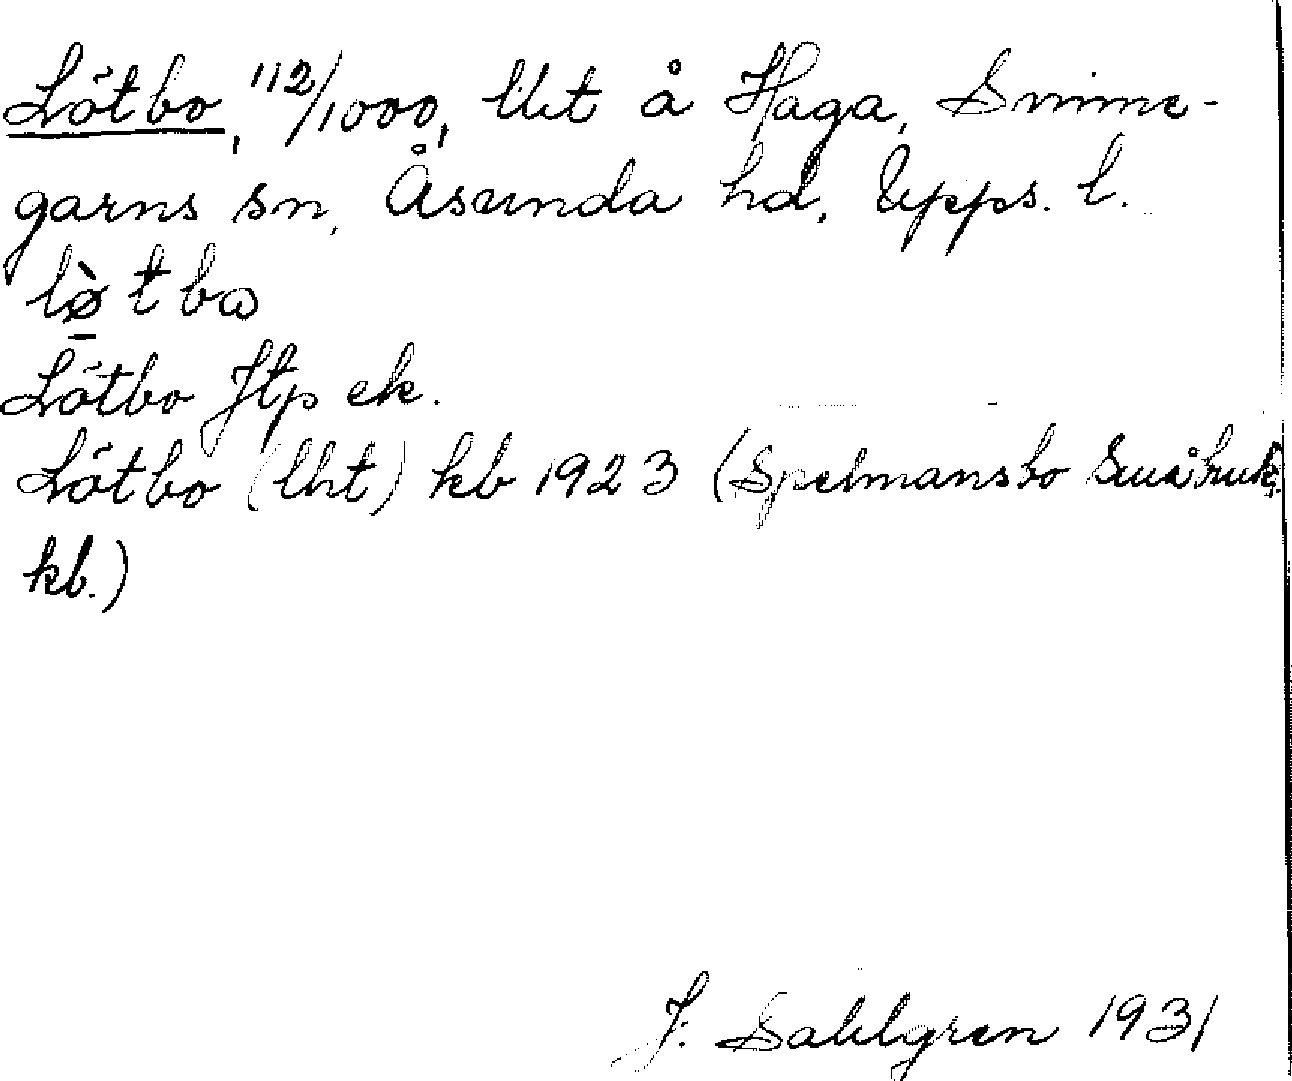 Lötbo, 112/1000, lht å Haga, Simme-
garns sn, Åsunda hd, Upps. l.
lø̀tbω
Lötbo Jtp ek.
Lötbo (lht) kb 1923 (Spelmansbo Småbruk
kb.)
J. Sahlgren 1931